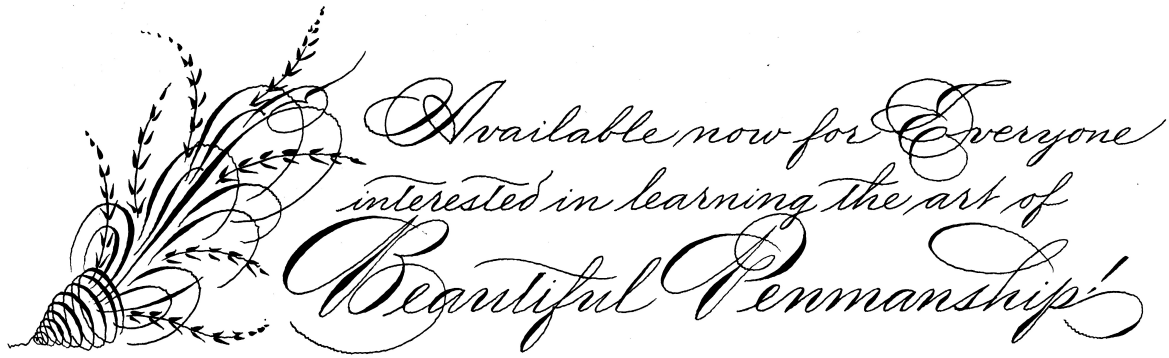 Available now for Everyone
interested in learning the art of
Beautiful Penmanship!